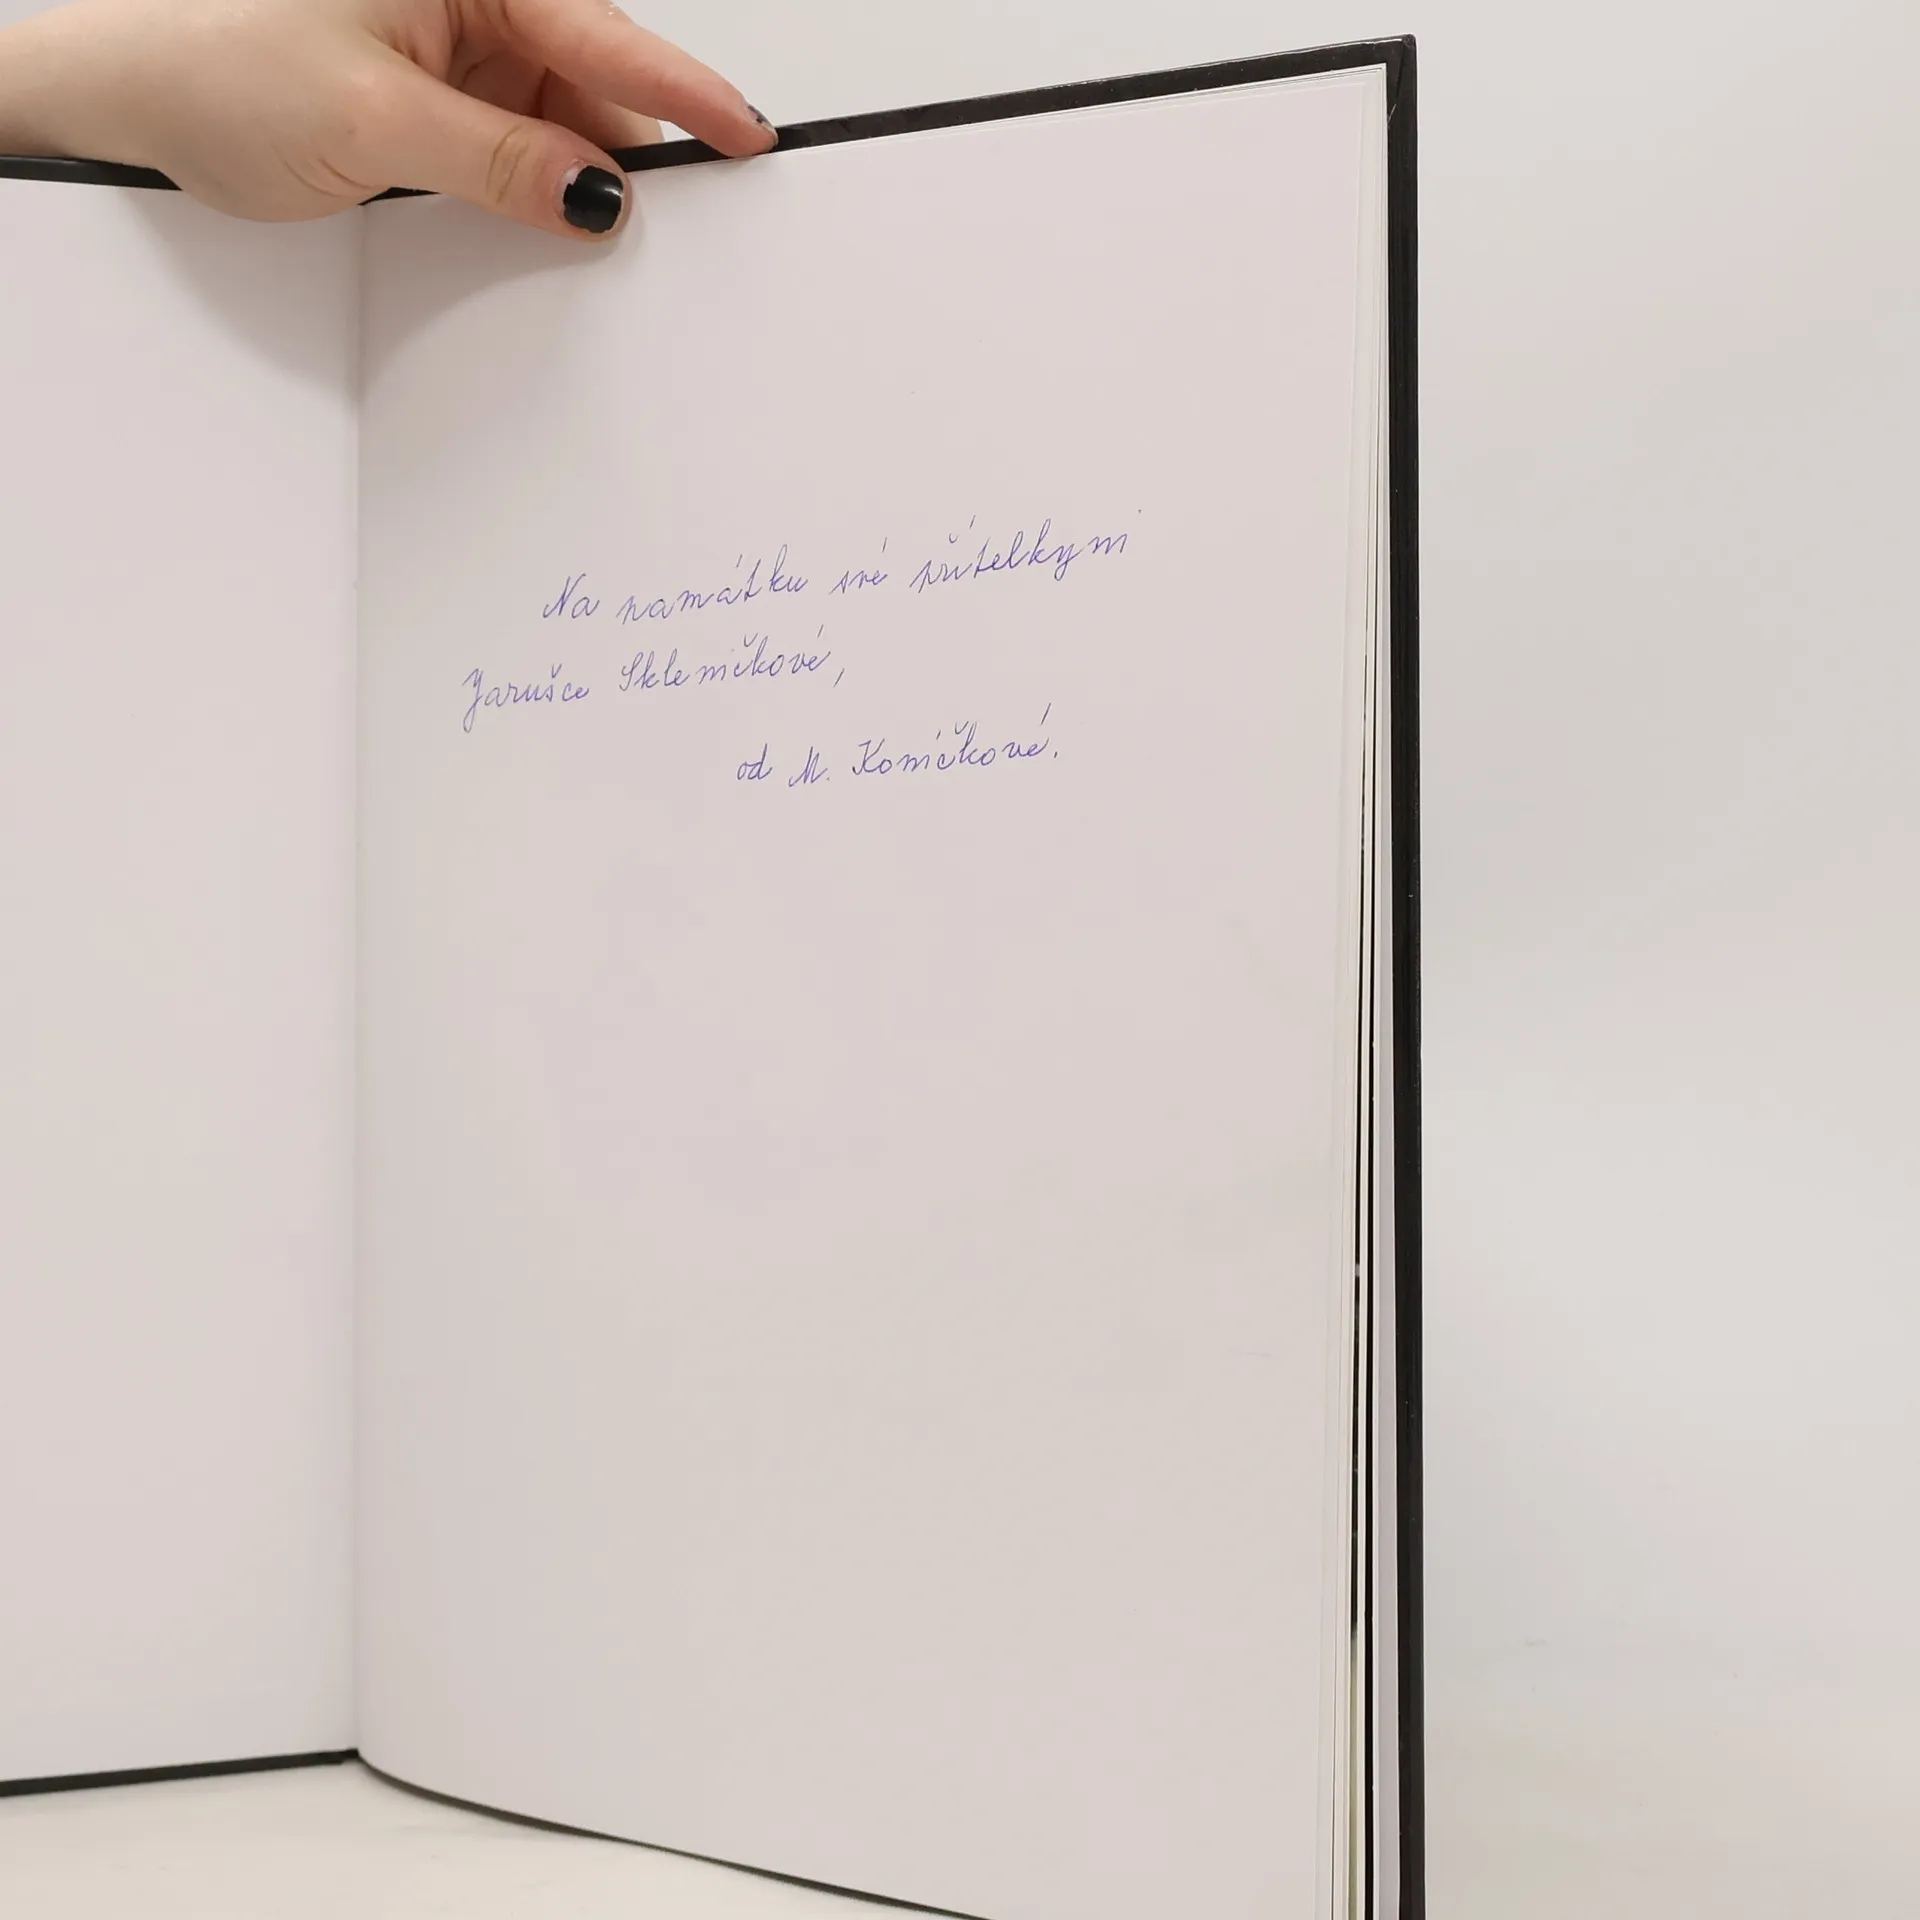 Na památku své přítelkyni
Jarušce Skleničkové,
od M. Koníčkové.